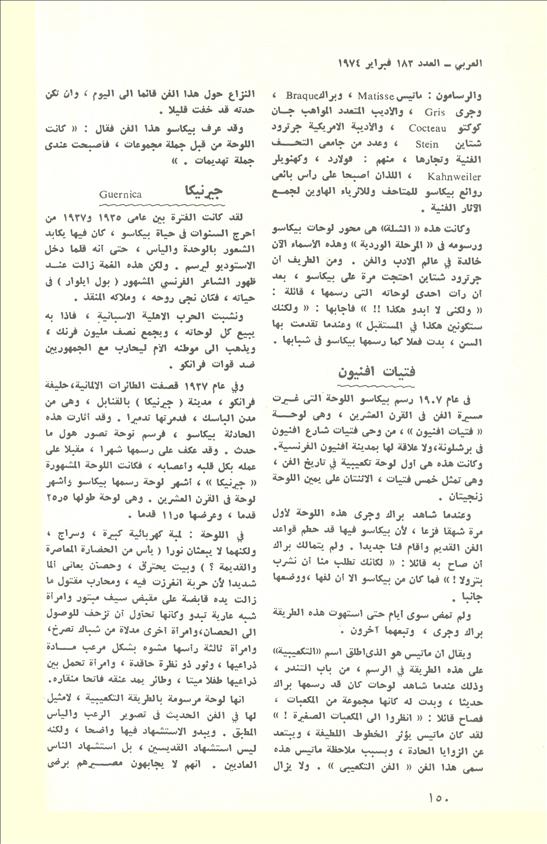 العربي ــ العدد ١٨٣ فبراير ١٩٧٤
والرسامون : ماتيس Matisse ، وبراك Braque ،
وجرى Gris ، والأديب المتعدد المواهب جــان
كوكتو Cocteau ، والأديبة الامريكية جرترود
شتاين Stein ، وعدد من جامعى التحــف
الفنية وتجارها ، منهم : فولارد ، وكهنويلر
Kahnweiler ، اللذان اصبحا على رأس بائعى
روائع بيكاسو للمتاحف وللأثرياء الهاوين لجمــع
الآثار الفنية .
وكانت هذه « الشلة» هى محور لوحات بيكاسو
ورسومه فى « المرحلة الوردية » وهذه الأسماء الآن
خالدة فى عالم الادب والفن . ومن الطريف أن
جرترود شتاين احتجت مرة على بيكاسو ، بعد
أن رات احدى لوحاته التى رسمها ، قائلة :
« ولكنى لا أبدو هكذا !! » فأجابها : « ولكنك
ستكونين هكذا في المستقبل » وعندما تقدمت بها
السن ، بدت فعلا كما رسمها بيكاسو فى شبابها .
فتيات افنيون
فى عام ١٩٠٧ رسم بيكاسو اللوحة التى غيــرت
مسيرة الفن فى القرن العشرين ، وهى لوحــة
« فتيات افنيون » ، من وحى فتيات شارع افنيون
فى برشلونة،ولا علاقة لها بمدينة أفنيون الفرنسية.
وكانت هذه هى اول لوحة تكعيبية فى تاريخ الفن ،
وهى تمثل خمس فتيات ، الاثنتان على يمين اللوحة
زنجيتان .
وعندما شاهد براك وجرى هذه اللوحة لأول
مرة شهقا فزعا ، لأن بيكاسو فيها قد حطم قواعد
الفن القديم وأقام فنا جديدا . ولم يتمالك براك
أن صاح به قائلا : « لكأنك تطلب منا أن نشرب
بترولا !» فما كان من بيكاسو الا أن لفها ،ووضعها
جانبا .
ولم تمض سوى أيام حتى استهوت هذه الطريقة
براك وجرى ، وتبعهما آخرون .
ويقال أن ماتيس هو الذى اطلق اسم «التكعيبية»
على هذه الطريقة فى الرسم ، من باب التندر ،
وذلك عندما شاهد لوحات كان قد رسمها براك
حديثا ، وبدت له كانها مجموعة من المكعبات ،
فصاح قائلا : « انظروا الى المكعبات الصغيرة ! »
لقد كان ماتيس يؤثر الخطوط اللطيفة ، ويبتعد
عن الزوايا الحادة ، وبسبب ملاحظة ماتيس هذه
سمى هذا الفن « الفن التكعيبى » . ولا يزال
النزاع حول هذا الفن قائما الى اليوم ، وان تكن
حدته قد خفت قليلا .
وقد عرف بيكاسو هذا الفن فقال : « كانت
اللوحة من قبل جملة مجموعات ، فأصبحت عندى
جملة تهديمات . »
جيرنيكا Guernica
لقد كانت الفترة بين عامى ١٩٣٥ و١٩٣٧ من
أحرج السنوات فى حياة بيكاسو ، كان فيها يكابد
الشعور بالوحدة واليأس ، حتى أنه قلما دخل
الاستوديو ليرسم . ولكن هذه الغمة زالت عنــد
ظهور الشاعر الفرنسي المشهور ( بول ايلوار ) فى
حياته ، فكان نجى روحه ، وملاكه المنقذ .
ونشبت الحرب الاهلية الاسبانية ، فاذا به
يبيع كل لوحاته ، ويجمع نصف مليون فرنك ،
ويذهب الى موطنه الأم ليحارب مع الجمهوريين
ضد قوات فرانكو .
وفى عام ١٩٣٧ قصفت الطائرات الالمانية،حليفة
فرانكو ، مدينة ( جيرنيكا ) بالقنابل ، وهى من
مدن الباسك ، فدمرتها تدميرا . وقد أثارت هذه
الحادثة بيكاسو ، فرسم لوحة تصور هول ما
حدث . وقد عكف على رسمها شهرا ، مقبلا على
عمله بكل قلبه وأعصابه ، فكانت اللوحة المشهورة
« جيرنيكا » ، أشهر لوحة رسمها بيكاسو وأشهر
لوحة فى القرن العشرين . وهى لوحة طولها ٢٥٫٥
قدما ، وعرضها ١١٫٥ قدما .
فى اللوحة : لمبة كهربائية كبيرة ، وسراج ،
ولكنهما لا يبعثان نورا ( يأس من الحضارة المعاصرة
والقديمة ؟ ) وبيت يحترق ، وحصان يعانى ألما
شديدا لأن حربة انغرزت فيه ، ومحارب مقتول ما
زالت يده قابضة على مقبض سيف مبتور وامرأة
شبه عارية تبدو وكأنها تحاول أن تزحف للوصول
الى الحصان،وامرأة اخرى مدلاة من شباك تصرخ،
وامرأة ثالثة رأسها مشوه بشكل مرعب مــادة
ذراعيها ، وثور ذو نظرة حاقدة ، وامرأة تحمل بين
ذراعيها طفلا ميتا ، وطائر يمد عنقه فاتحا منقاره.
انها لوحة مرسومة بالطريقة التكعيبية ، لامثيل
لها فى الفن الحديث فى تصوير الرعب واليأس
المطبق . ويبدو الاستشهاد فيها واضحا ، ولكنه
ليس استشهاد القديسين ، بل استشهاد الناس
العاديين . انهم لا يجابهون مصــيرهم برضى
١٥٠